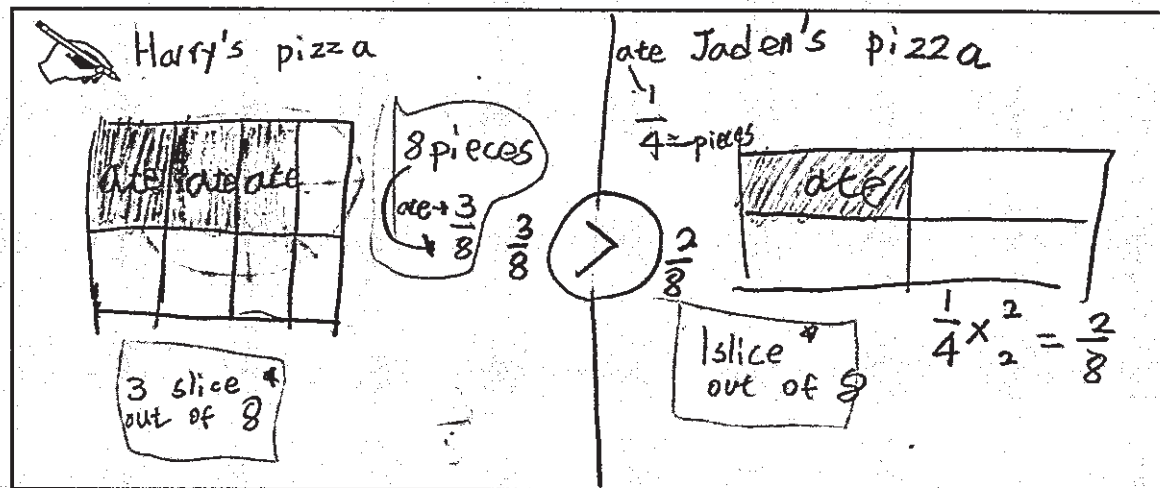 Harry's pizza
ate ate ate
8 pieces
ate → 3/8
3 slice
out of 8
3/8 > 2/8
ate Jaden's pizza
1/4 = pieces
ate
1 slice
out of 8
1/4 × 2/2 = 2/8